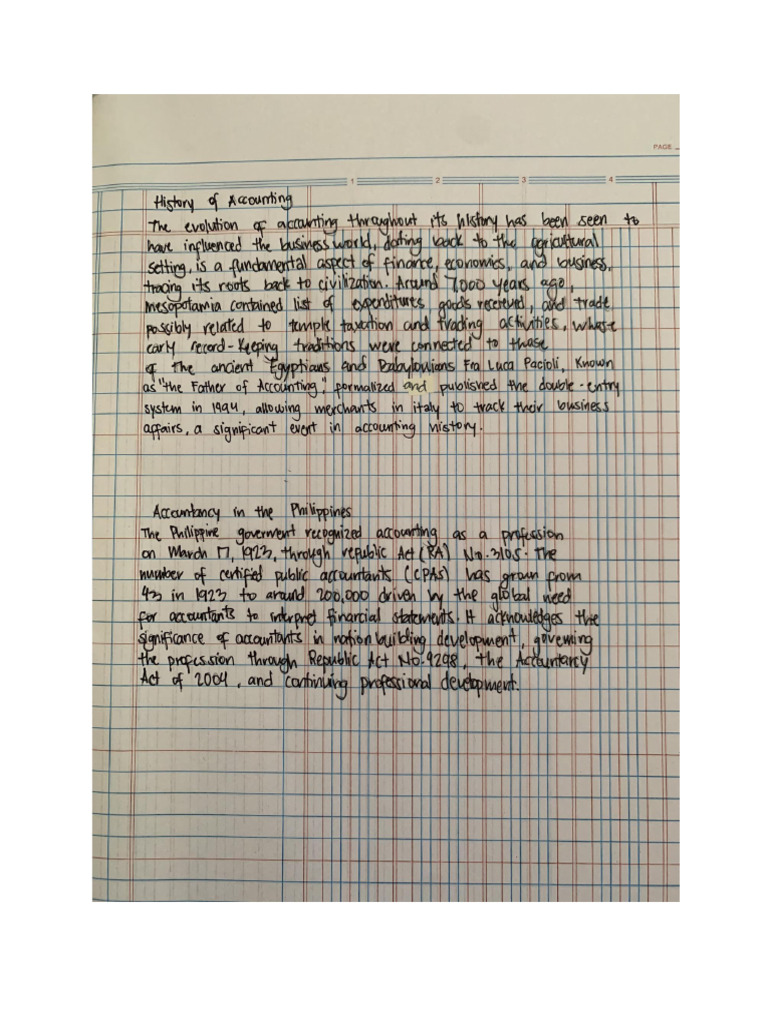 PAGE
1 2 3 4
History of Accounting
The evolution of accounting throughout its history has been seen to
have influenced the business world, dating back to the agricultural
setting, is a fundamental aspect of finance, economics, and business,
tracing its roots back to civilization. Around 7,000 years ago,
mesopotamia contained list of expenditures goods received, and trade
possibly related to temple taxation and trading activities, whose
early record-keeping traditions were connected to those
of The ancient Egyptians and Babylonians Fra Luca Pacioli, Known
as "the Father of Accounting," formalized and published the double-entry
system in 1994, allowing merchants in italy to track their business
affairs, a significant event in accounting history.
Accountancy in the Philippines
The Philippine goverment recognized accounting as a profession
on March 17, 1923, through republic Act (RA) No. 3105. The
number of certified public accountants (CPAs) has grown from
43 in 1923 to around 200,000 driven by the global need
for accountants to interpret financial statements. It acknowledges the
significance of accountants in nation building development, governing
the profession through Republic Act No. 9298, the Accountancy
Act of 2004, and continuing professional development.